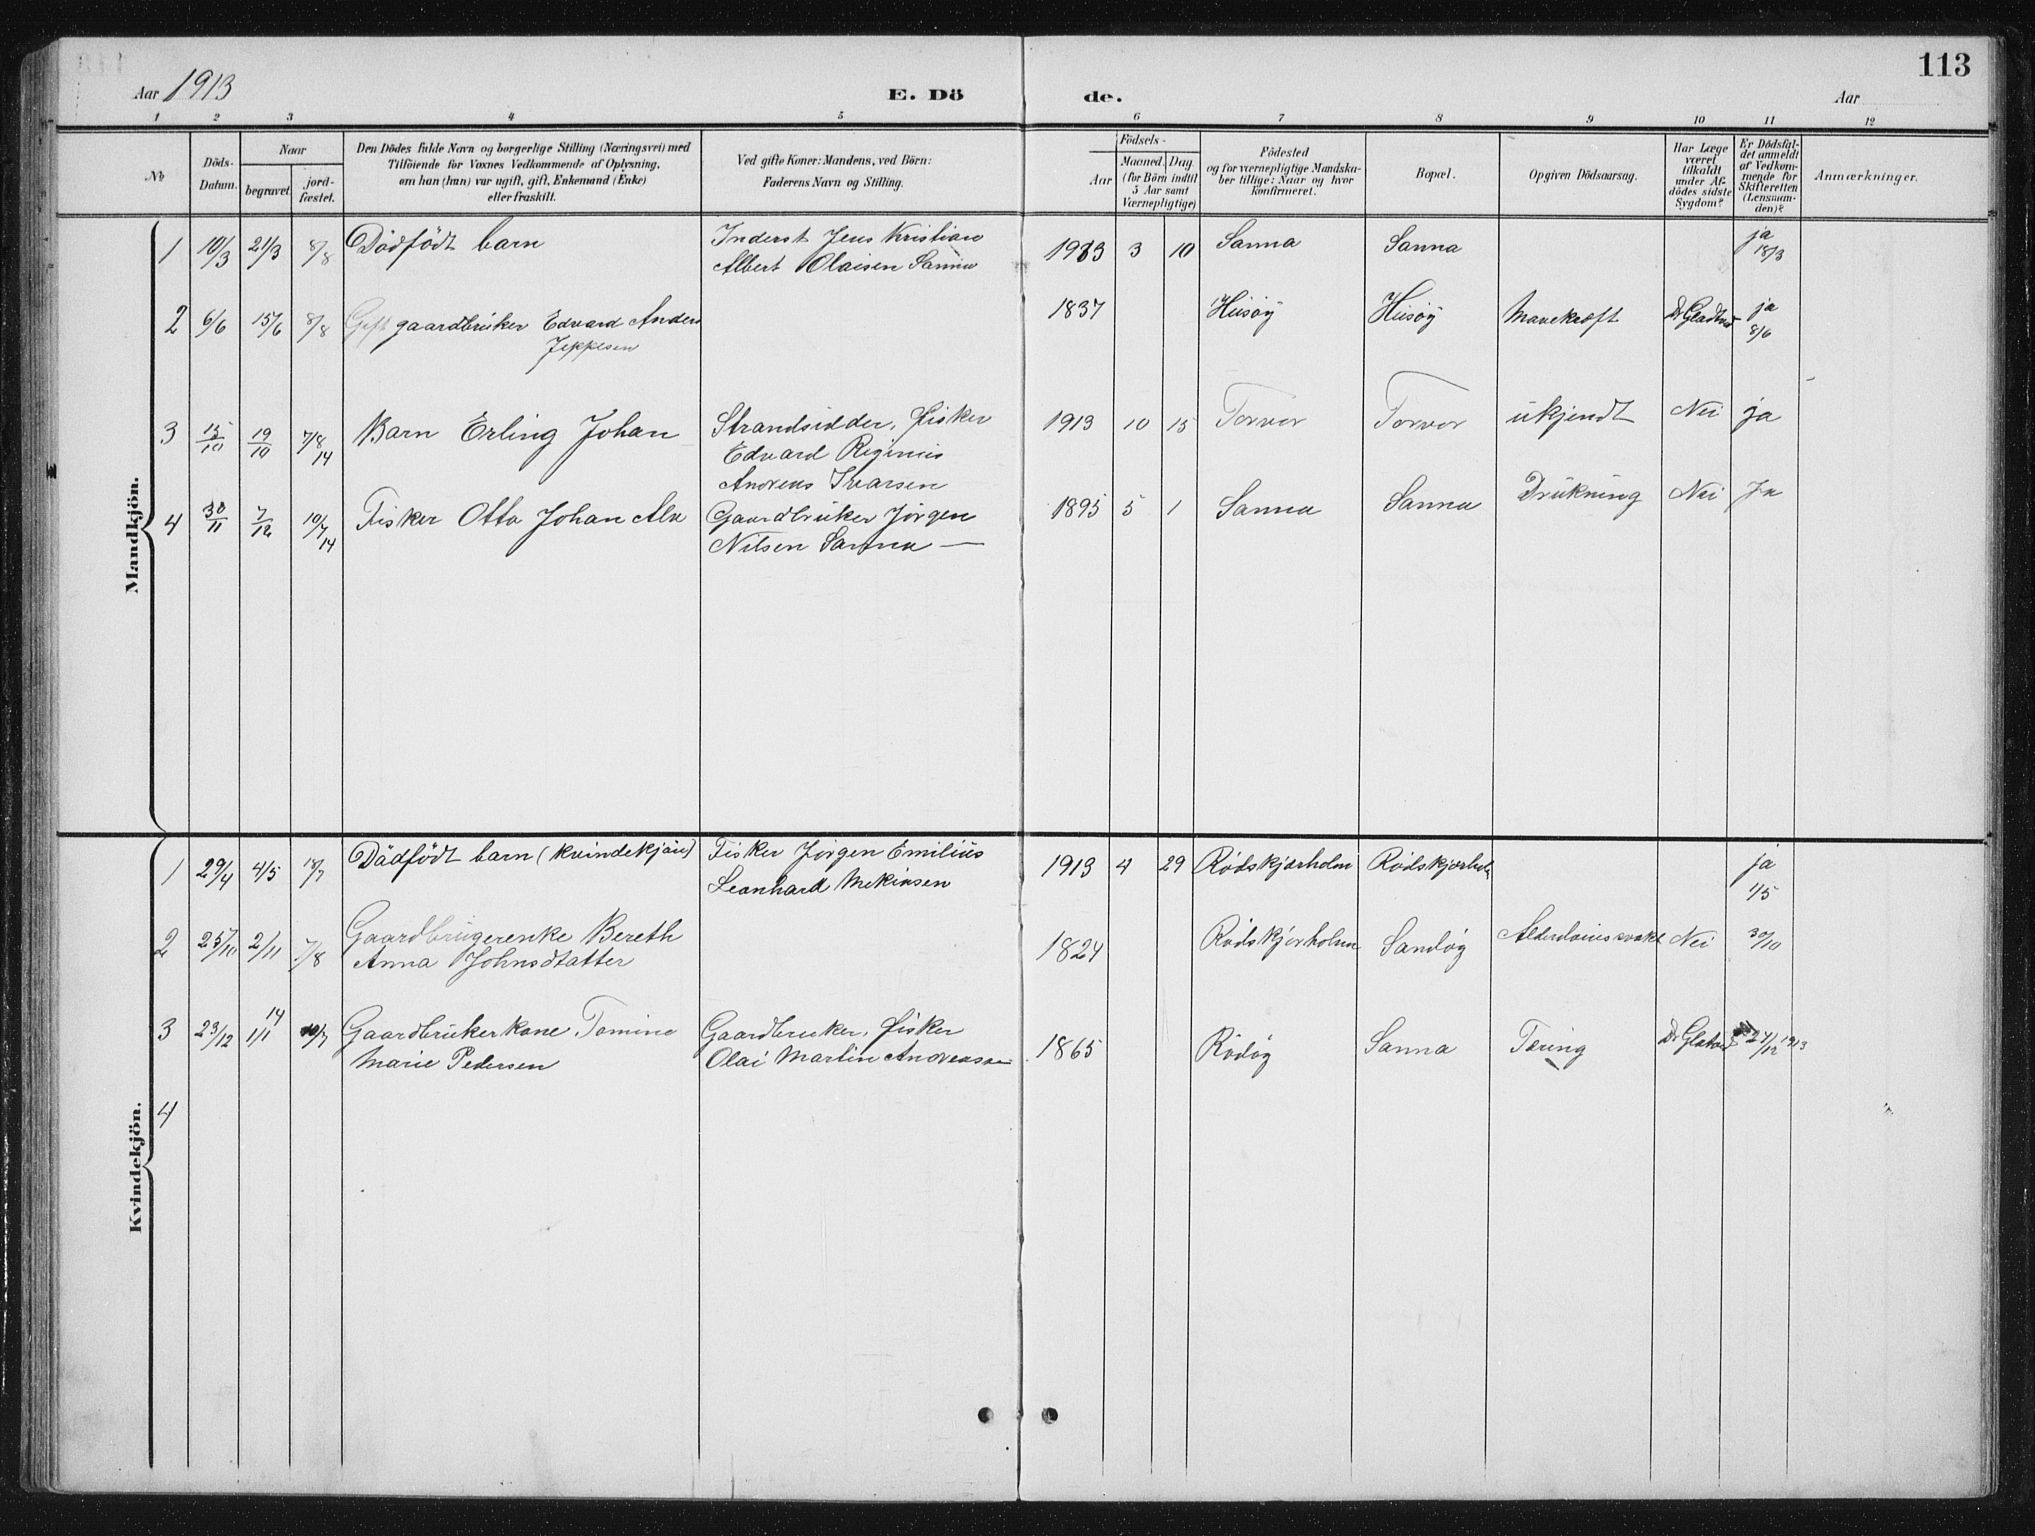 113
Aar 1913
E. Dö de.
Aar
1 2 3 4 5 6 7 8 9 10 11 12
No
Döds-
Datum.
Naar
begravet.
jord-
fæstet.
Den Dödes fulde Navn og borgerlige Stilling (Næringsvei) med
Tilföiende for Voxnes Vedkommende af Oplysning,
om han (hun) var ugift, gift, Enkemand (Enke)
eller fraskilt.
Ved gifte Koner: Mandens, ved Börn:
Faderens Navn og Stilling.
Födsels-
Aar
Maaned. Dag.
(for Börn indtil
5 Aar samt
Værnepligtige)
Födested
og for værnepligtige Mandska-
ber tillige: Naar og hvor
konfirmeret.
Bopæl.
Opgiven Dödsaarsag.
Har Læge
været
tilkaldt
under Af-
dödes sidste
Sygdom?
Er Dödsfal-
det anmeldt
af Vedkom-
mende for
Skifteretten
(Lensman-
den)?
Anmærkninger.
Mandkjön.
1 10/3 21/3 8/8 Dödfödt barn Inderst Jens Kristian 1913 3 10 Sanna Sanna ja
Albert Olaisen Sanna 18/3
2 6/6 15/6 8/8 Gift gaardbruker Edvard Anders 1837 Husöy Husöy Mavekræft ja
Jeppesen 8/6
3 15/10 19/10 7/8 14 Barn Erling Johan Strandsidder, fisker 1913 10 15 Torvær Torvær ukjendt Nei ja
Edvard Reginius
Andreas Ivarsen
4 30/11 7/12 10/7 14 Fisker Otto Johan Alv Gaardbruker Jørgen 1895 5 1 Sanna Sanna Drukning Nei Ja
Nilsen Sanna —
Kvindekjön.
1 29/4 4/5 18/7 Dödfödt barn (kvindekjön) Fisker Jørgen Emilius 1913 4 29 Rødskjærholm Rødskjærholm ja
Leonhard Mekinsen 4/5
2 25/10 2/11 7/8 Gaardbrugerenke Bereth 1824 Rødskjærholm Sandøy Nei 30/10
Anna Johnsdtatter
3 23/12 1/1 14 10/7 Gaardbrukerkone Tomine Gaardbruker, fisker 1865 Rødøy Sanna Tæring 27/12 1913
Marie Pedersen Olai Martin Andreassen
4